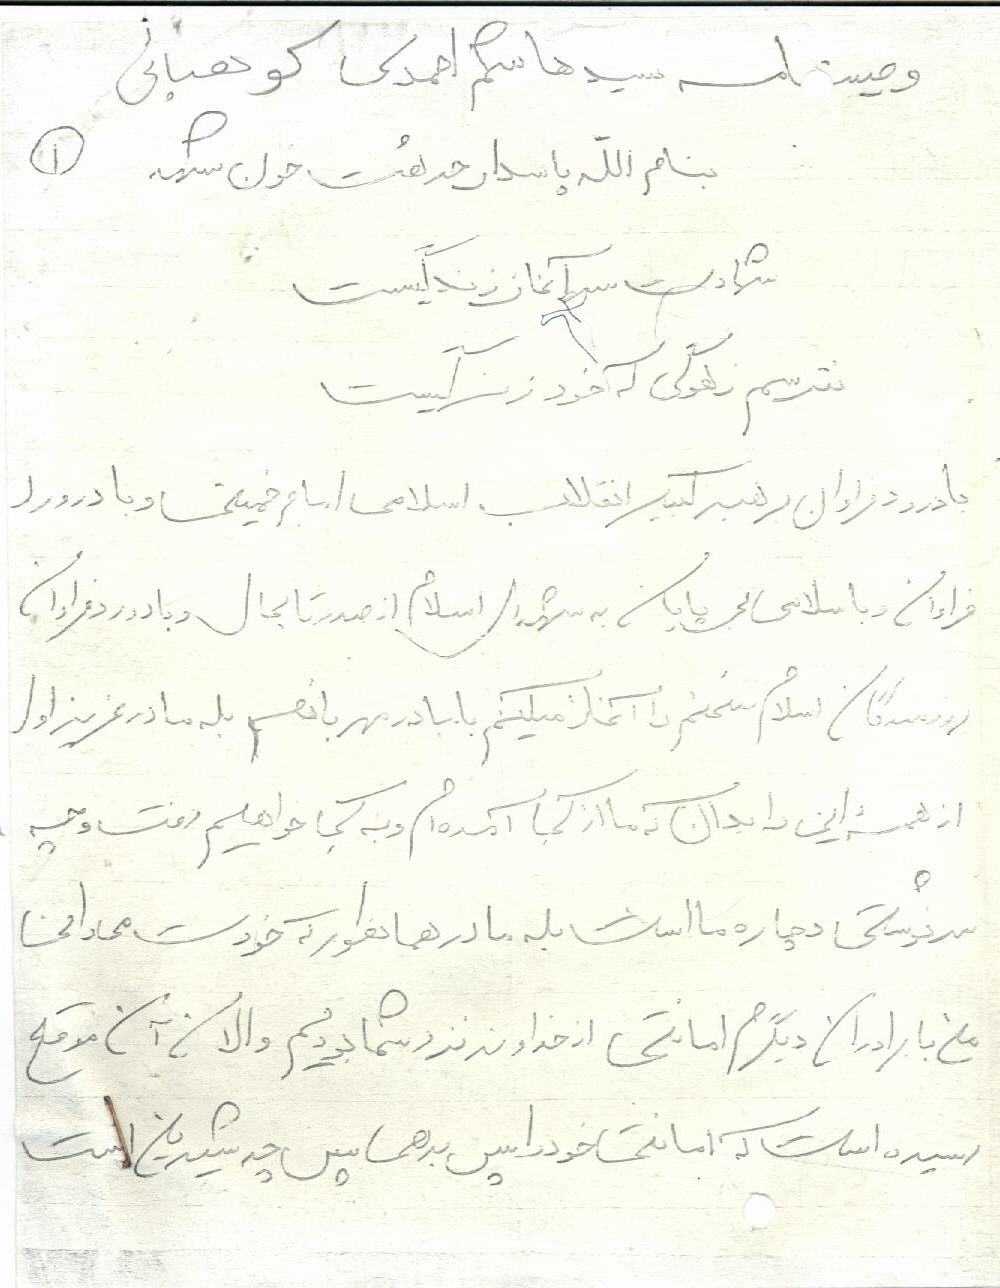 وصیتنامه سید هاشم احمدی کوهبانی
بنام الله پاسدار حرمت خون شهید
۱
شهادت سرآغاز زندگیست
نترسم زمرگی که خود زندگیست
با درود فراوان بر رهبر کبیر انقلاب اسلامی امام خمینی و با درورد
فراوان و با سلامی بی پایان به شهدای اسلام از صدر تا بحال و با درود فراوان
رزمندگان اسلام سخنم را آغاز میکنم با مادر مهربانم بله مادر عزیز اول
از همه این را بدان که ما از کجا آمده ام و به کجا خواهیم رفت و چه
سرنوشتی دچاره ما است بله مادر همانطور که خودت میدانی
من با برادران دیگرم امانتی از خداوند نزد شما بودیم و الان آن موقع
رسیده است که امانتی خود را پس بدهی پس چه شیرین است